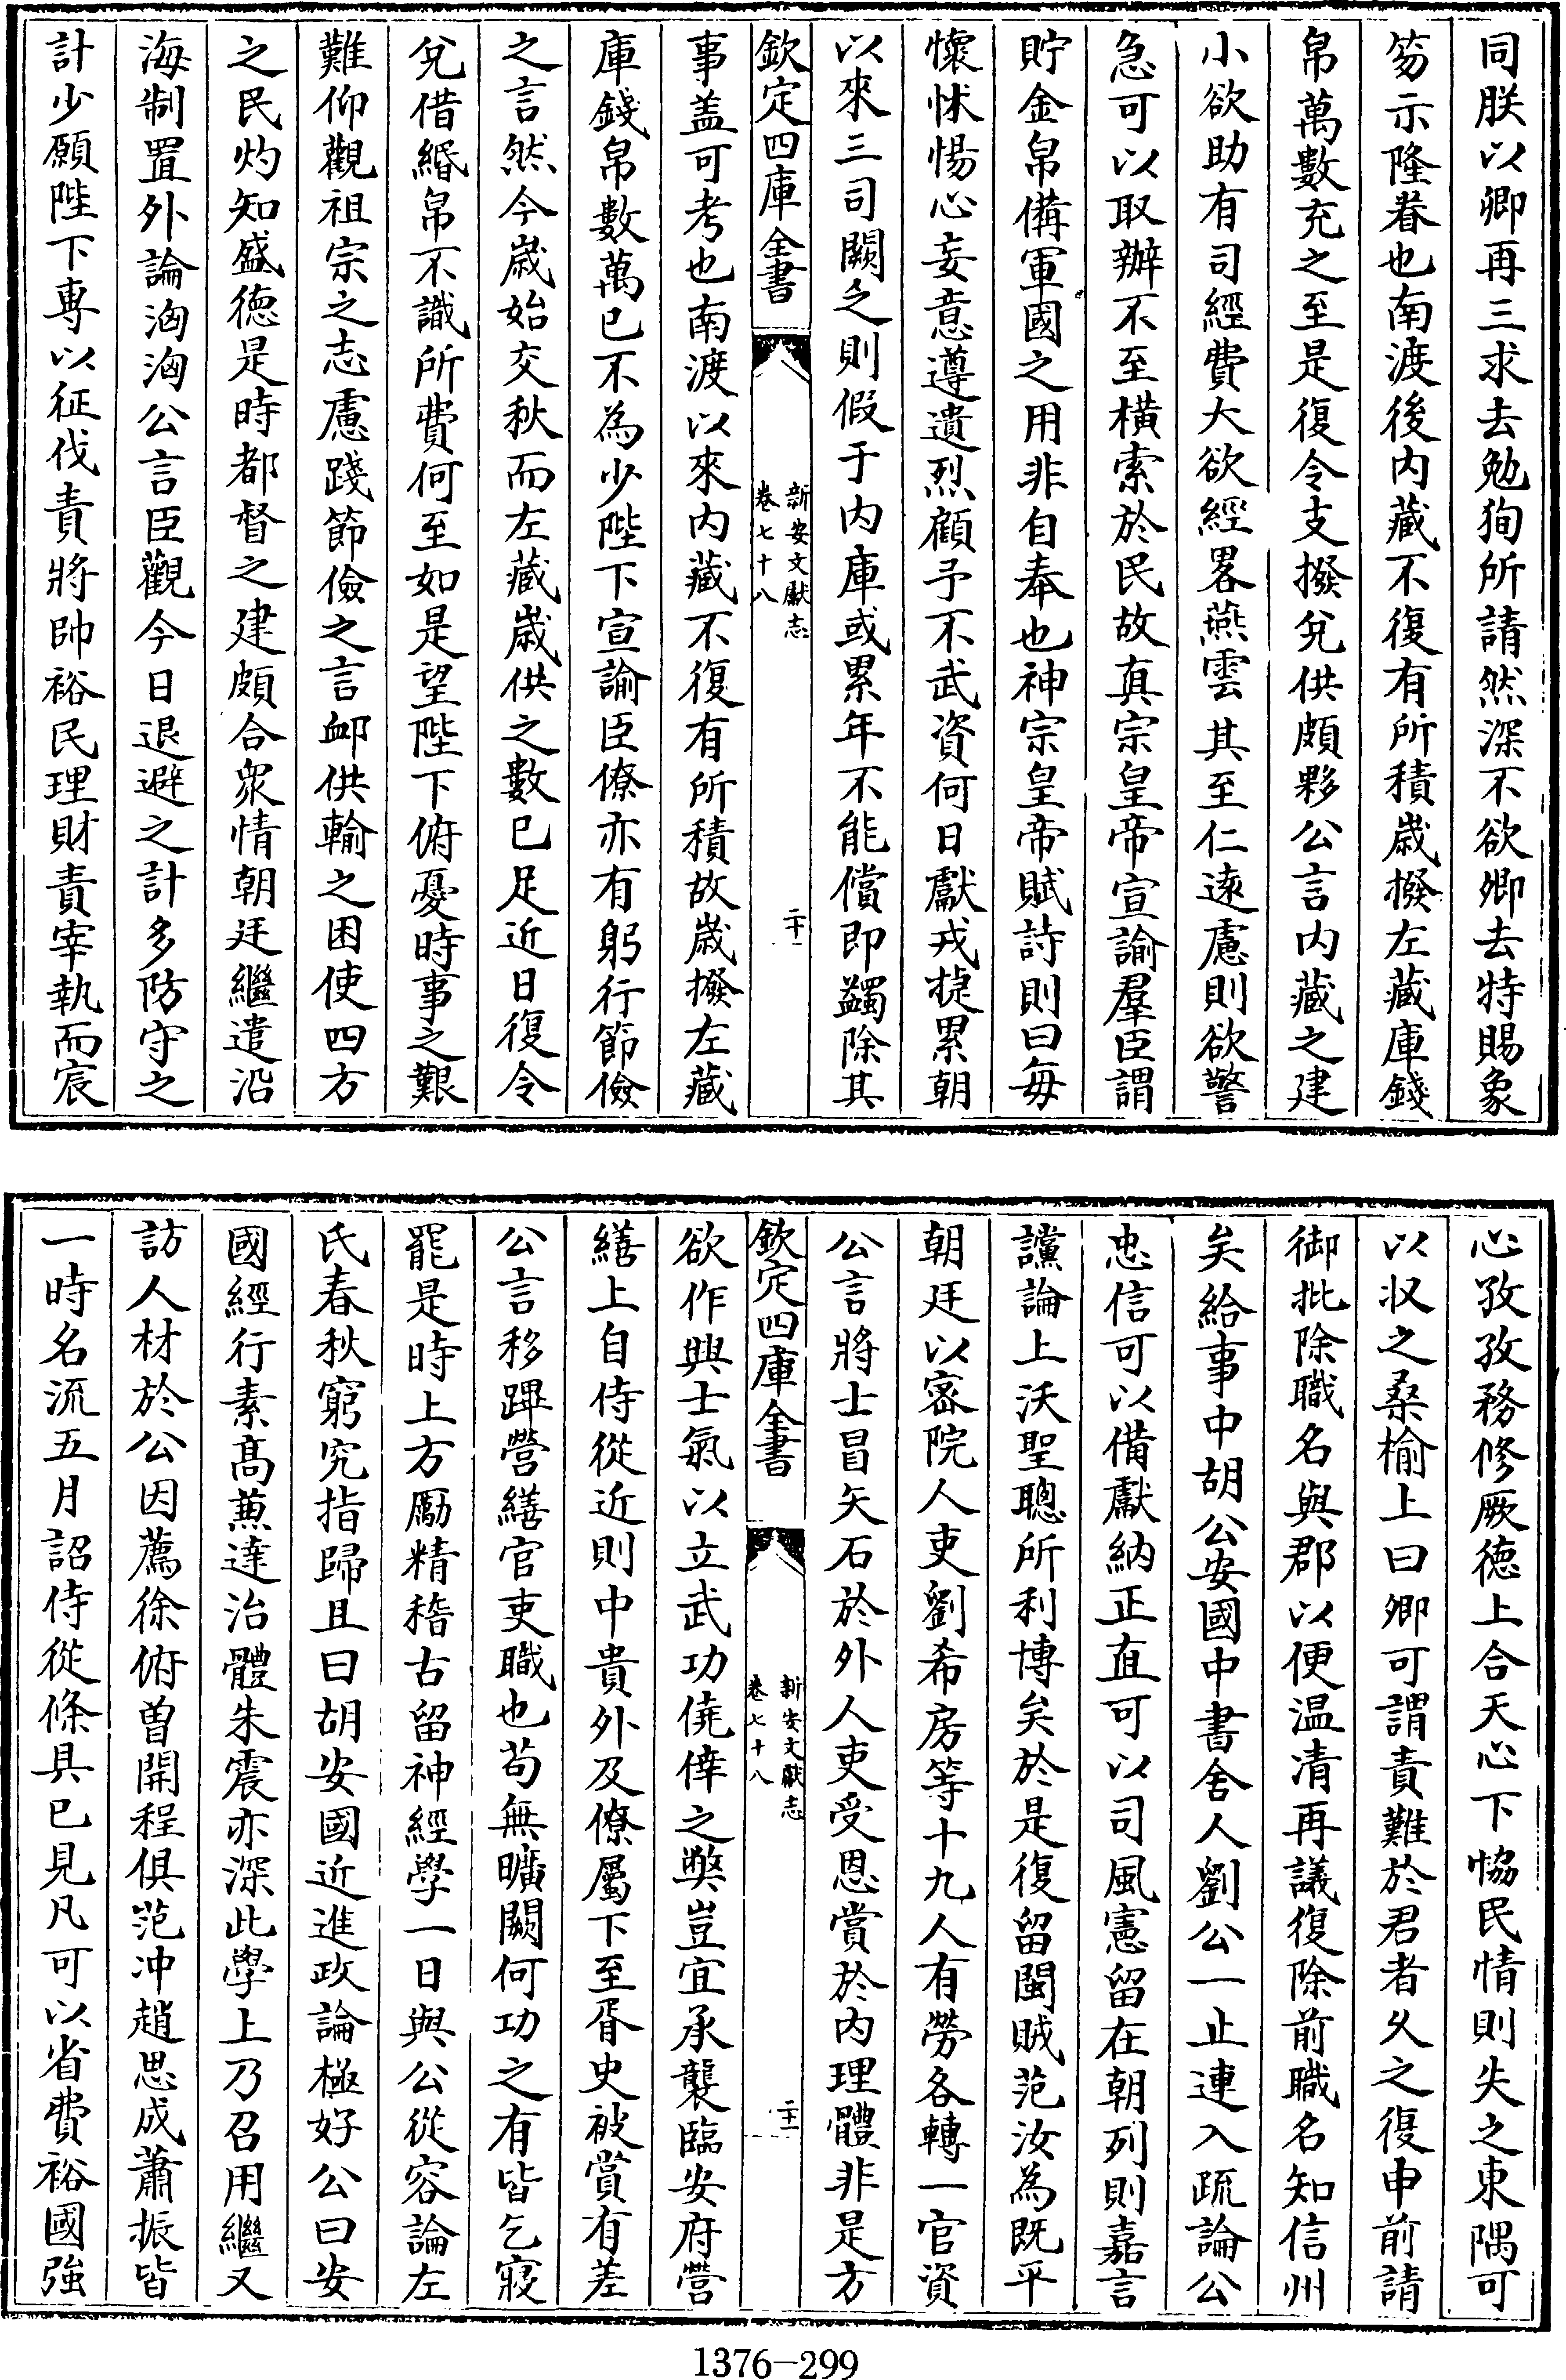 同朕以卿再三求去勉狥所請然深不欲卿去特賜象
笏示隆眷也南渡後内藏不復有所積歳撥左藏庫錢
帛萬數充之至是復令支撥兌供頗夥公言内藏之建
小欲助有司經費大欲經畧燕雲其至仁逺慮則欲警
急可以取辦不至橫索於民故真宗皇帝宣諭羣臣謂
貯金帛備軍國之用非自奉也神宗皇帝賦詩則曰每
懷怵惕心妄意遵遺烈顧予不武資何日獻戎㨗累朝
以來三司闕乏則假于内庫或累年不能償即蠲除其
欽定四庫全書
新安文獻志
卷七十八
二十
事盖可考也南渡以來内藏不復有所積故歳撥左藏
庫錢帛數萬已不為少陛下宣諭臣僚亦有躬行節儉
之言然今歳始交秋而左藏歳供之數已足近日復令
兌借緡帛不識所費何至如是望陛下俯憂時事之艱
難仰觀祖宗之志慮踐節儉之言䘏供輸之困使四方
之民灼知盛徳是時都督之建頗合衆情朝廷繼遣沿
海制置外論洶洶公言臣觀今日退避之計多防守之
計少願陛下專以征伐責將帥裕民理財責宰執而宸
心孜孜務修厥徳上合天心下恊民情則失之東隅可
以収之桑榆上曰卿可謂責難於君者久之復申前請
御批除職名與郡以便温凊再議復除前職名知信州
矣給事中胡公安國中書舍人劉公一止連入疏論公
忠信可以備獻納正直可以司風憲留在朝列則嘉言
讜論上沃聖聰所利博矣於是復留閩賊范汝為既平
朝廷以宻院人吏劉希房等十九人有勞各轉一官資
公言將士冒矢石於外人吏受恩賞於内理體非是方
欽定四庫全書
新安文獻志
卷七十八
二十一
欲作興士氣以立武功僥倖之弊豈宜承襲臨安府營
繕上自侍從近則中貴外及僚屬下至胥史被賞有差
公言移蹕營繕官吏職也茍無曠闕何功之有皆乞寢
罷是時上方勵精稽古留神經學一日與公從容論左
氏春秋窮究指歸且曰胡安國近進政論極好公曰安
國經行素髙兼達治體朱震亦深此學上乃召用繼又
訪人材於公因薦徐俯曽開程俱范沖趙思成蕭振皆
一時名流五月詔侍從條具已見凡可以省費裕國強
1376-299